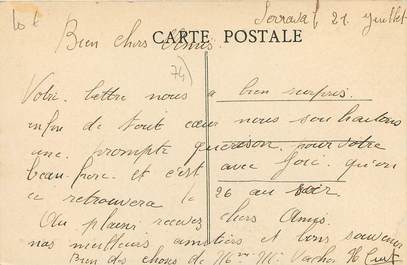 Serraval 21 Juillet
CARTE POSTALE
Bien chers Amis.
74
Votre lettre nous a bien surpris.
enfin de tout cœur nous souhaitons
une prompte guérison pour votre
beau-frère et c'est avec joie qu'on
se retrouvera le 26 au soir
Au plaisir recevez chers Amis
nos meilleurs amitiés et bons souvenirs
Bien des choses de Mme Mr